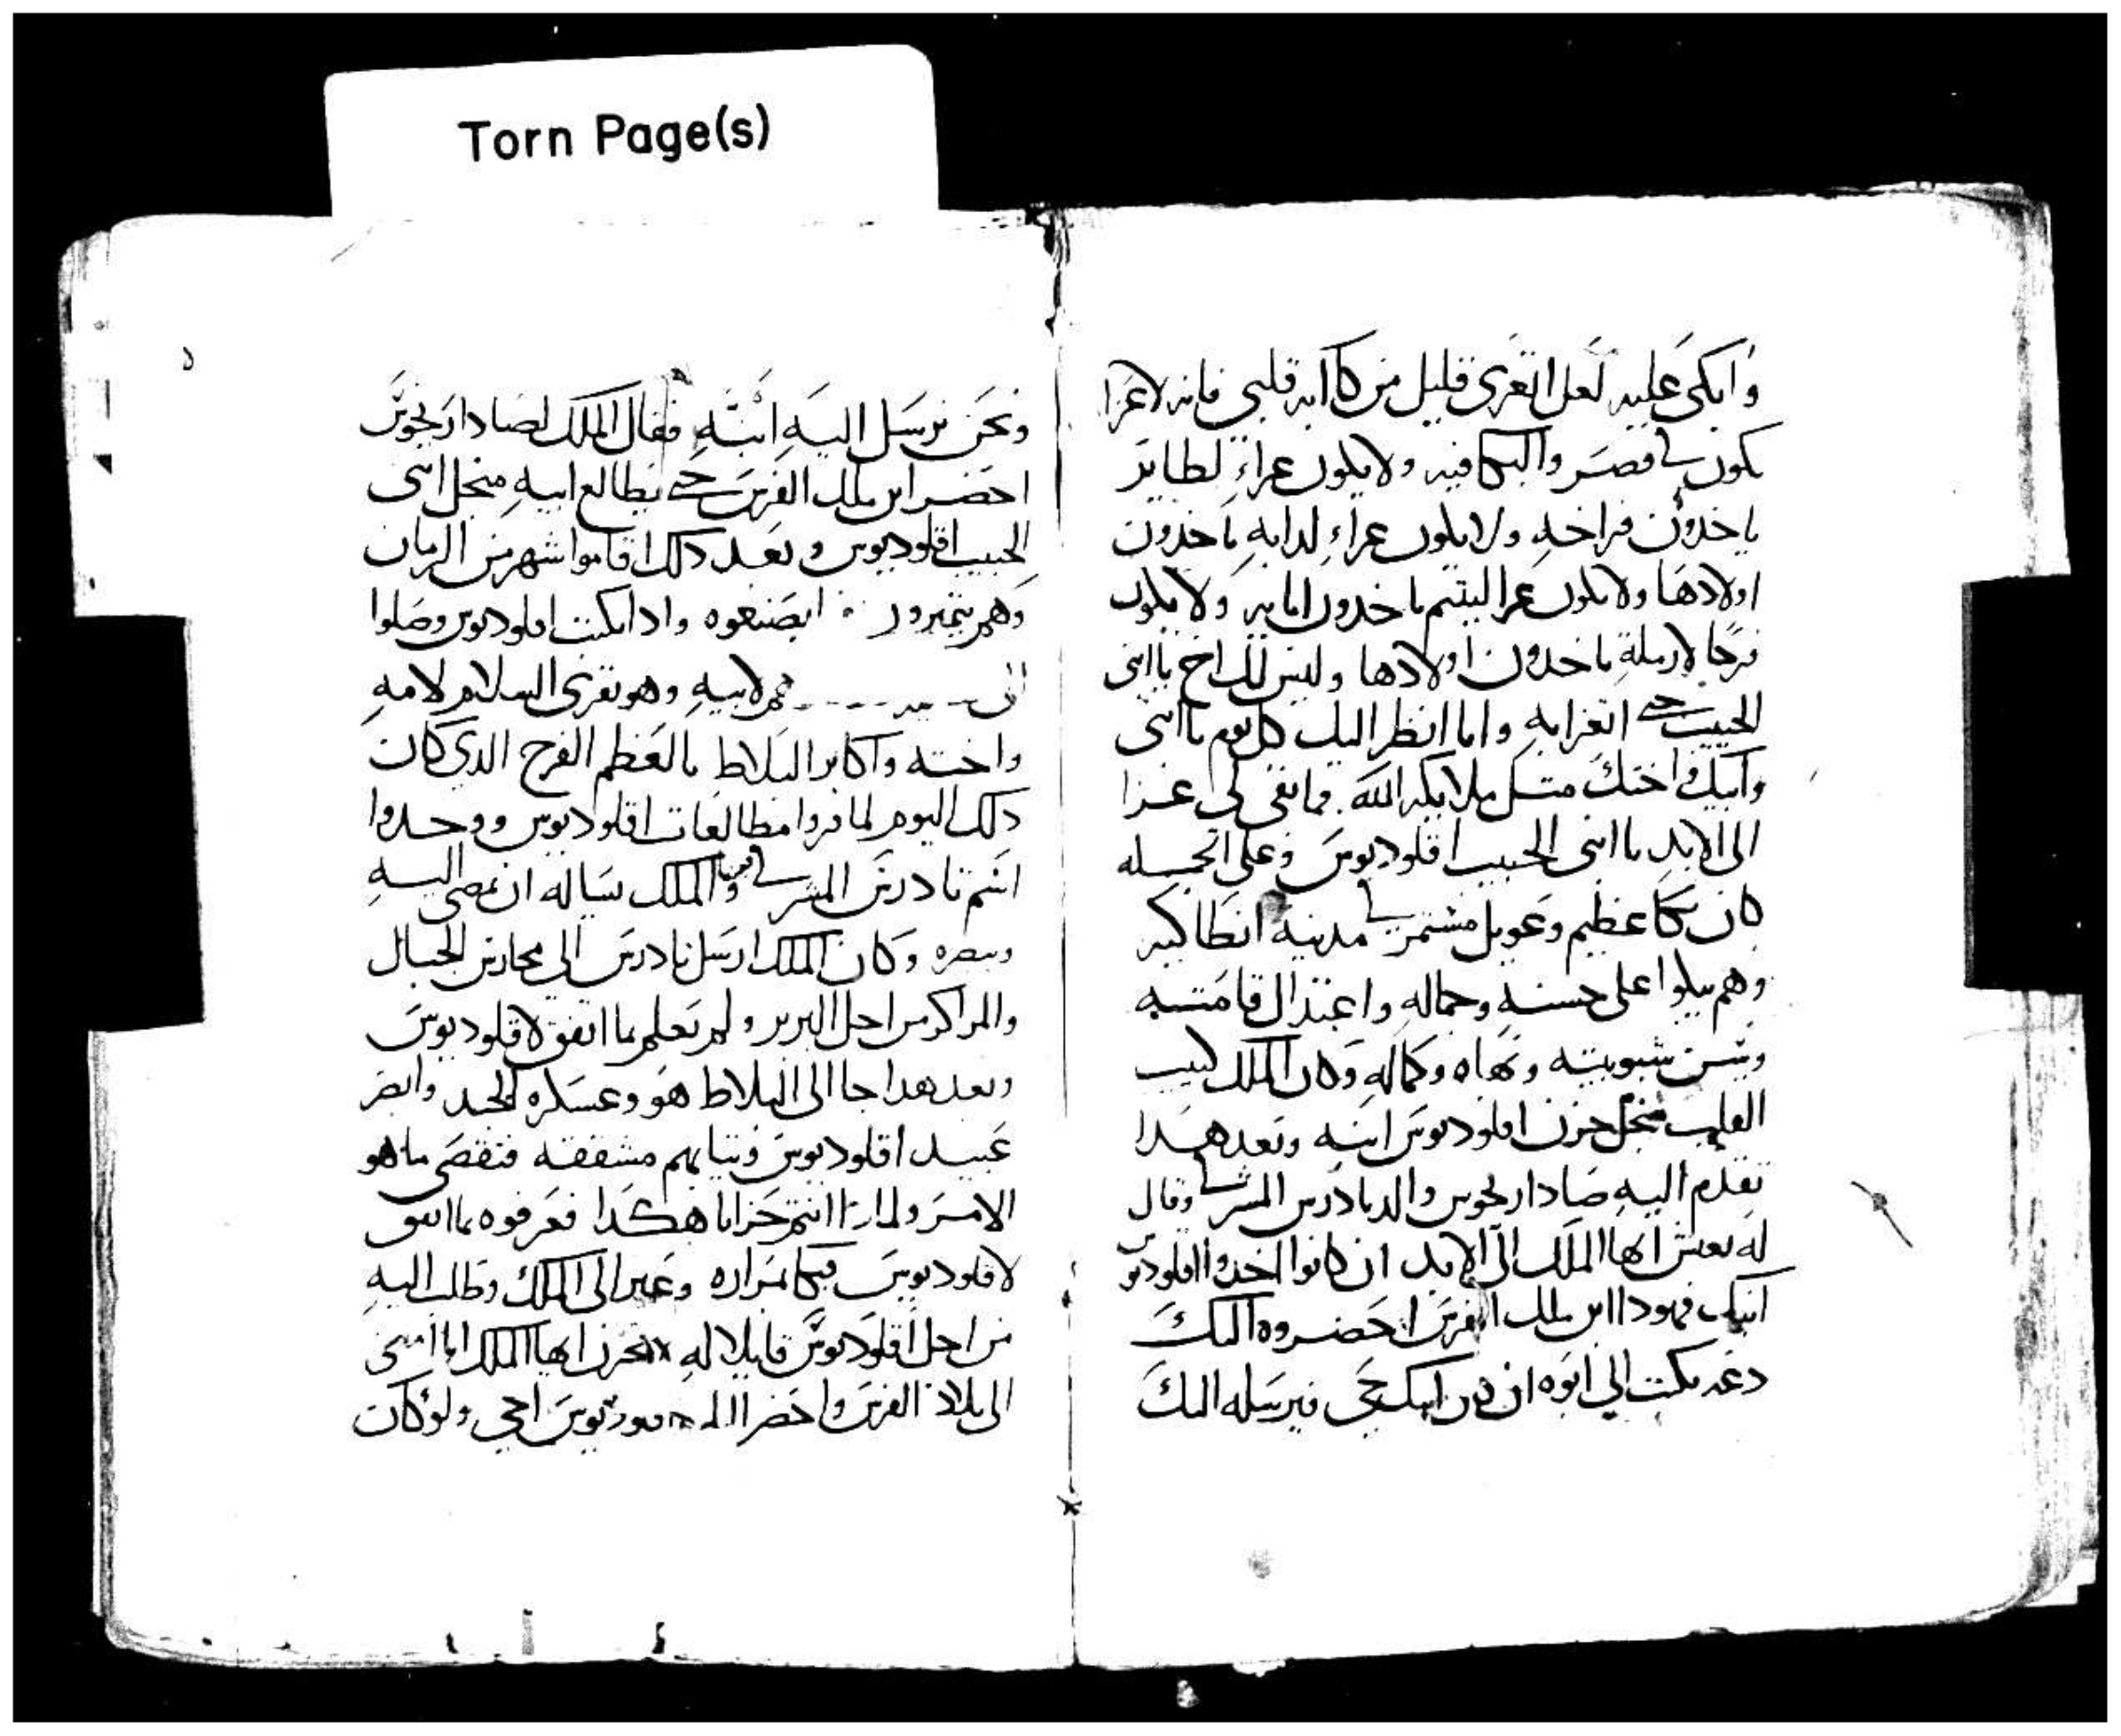 Torn Page(s)
وابكى عليه لعل اتعزى قليل من كآابه قلبي فانه لا عزا
يكون في قصر والبكا فيه ولا يكون عزاء لطاير
ياخذون فراخه ولا يكون عزاء لدابه ياخدون
اولادها ولا يكون عزا ليتيم ياخدون اباه ولا يكون
فرحا لارملة ياخدون اولادها وليس لك اخ يا ابنى
الحبيب حتى اتعزا به واما انظر اليك كل يوم يا ابنى
وابيك واختك متل ملايكة الله فما بقى لى عزا
الى الابد يا ابنى الحبيب اقلوديوس وعلى الجمله
كان بكا عظيم وعويل مشتمر في مدينة انطاكيه
وهم يبكوا على حسنه وجماله واعتدال قامته
وسن شبوبيته وبهاه وكماله وكان الملك كييب
القلب منجل حزن اقلوديوس ابنه وبعد هدا
تقدم اليه صادار يخوس والد تادرس المشرقي وقال
له تعيش ايها الملك الى الابد ان كانوا اخدوا اقلوديوس
ابنك فهودا ابن ملك الفرس احضروه اليك
دعه يكتب الي ابوه ان كان ابنك حى فيرسله اليك
ونحن نرسل اليه ابنه فقال الملك لصادار يخوس
احضر ابن ملك الفرس حتى يطالع ابيه منجل ابنى
الحبيب اقلوديوس وبعد دلك اقاموا شهر من الزمان
وهم يتخبرون ايصنعوه وادا بكتب اقلوديوس وصلوا
الى لابيه وهو يقرى السلام لامه
واخته واكابر البلاط يا لعظم الفرح الدي كان
دلك اليوم لما قروا مطالعات اقلوديوس ووجدوا
اسم تادرس المشرقي فيها والملك يساله ان يمضى اليه
وينصره وكان الملك ارسل تادرس الى محارس الجبال
والمراكز من اجل البربر ولم يعلم بما اتفق لاقلوديوس
وبعد هدا جا الى البلاط هو وعسكره الجند وابصر
عبيد اقلوديوس وتيابهم مشققه فتقصى ما هو
الامر ولمادا انتم حزانا هكدا فعرفوه بما اتفق
لاقلوديوس فبكا بمراره وعبر الى الملك وطلب اليه
من اجل اقلوديوس قايلا له لا تحزن ايها الملك انا امضى
الى بلاد الفرس واحضر اقلوديوس اخي ولو كان